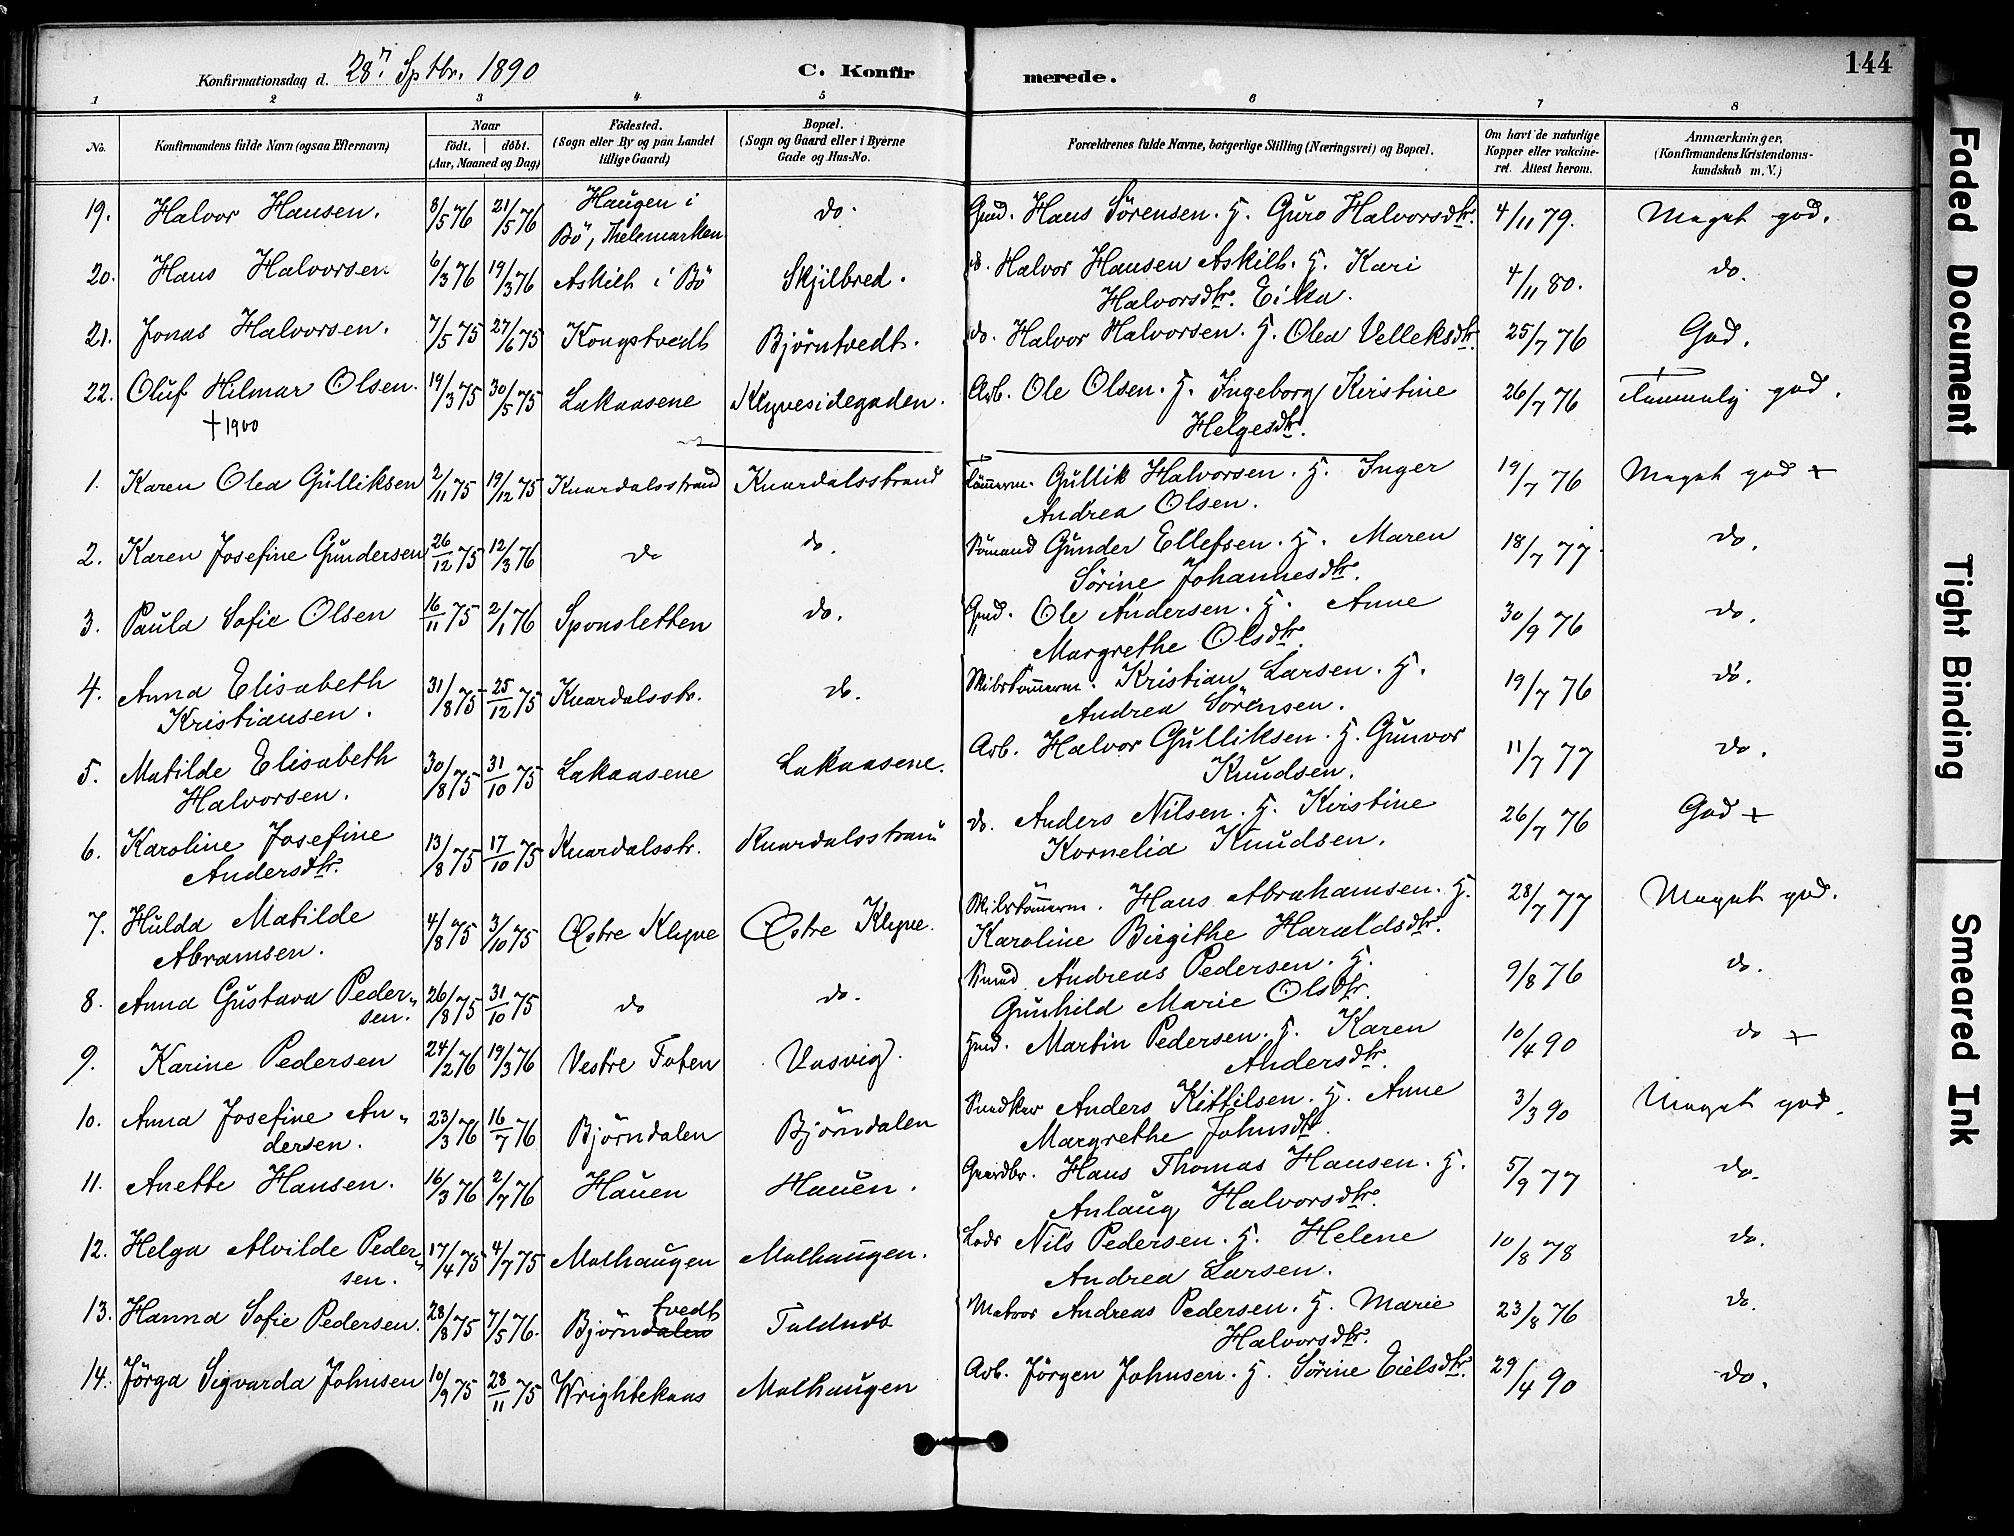 144
Konfirmationsdag d. 28n Sptbr. 1890 C. Konfirmerede.
1 2 3 4 5 6 7 8
No. Konfirmandens fulde Navn (ogsaa Efternavn) Naar født. døbt. (Aar, Maaned og Dag) Födested. (Sogn eller By og paa Landet tillige Gaard) Bopæl. (Sogn og Gaard eller i Byerne Gade og Hus-No. Forældrenes fulde Navne, borgerlige Stilling (Næringsvei) og Bopæl. Om havt de naturlige Kopper eller vakcineret. Attest herom. Anmærkninger, (Konfirmandens Kristendomskundskab m. V.)
19. Halvor Hansen. 8/5 76 21/5 76 Haugen i Bö, Thelemarken do. Gmd. Hans Sörensen. H. Guro Halvorsdtr. 4/11 79. Meget god.
20. Hans Halvorsen 6/3 76 19/3 76 Askilt i Bö Skjilbred. d. Halvor Hansen Askilt. H. Kari
Halvorsdtr. Eika. 4/11 80. do.
21. Jonas Halvorsen. 7/5 75 27/6 75 Kongstvedt Björntvedt. do. Halvor Halvorsen. H. Olea Velleksdtr. 25/7 76 God.
22. Oluf Hilmar Olsen. 19/3 75 30/5 75 Lakaasene Klyvesidegaden. Arb. Ole Olsen. H. Ingeborg Kirstine
† 1900 Helgesdtr. 26/7 76 Temmelig god.
1. Karen Olea Gulliksen 2/11 75 19/12 75 Knardalsstrand Knardalsstrand Tömmerm. Gullik Halvorsen. H. Inger
Andrea Olsen. 19/7 76 Meget god +
2. Karen Josefine Gundersen 26/12 75 12/3 76 do do. Sömand Gunder Ellefsen. H. Maren
Sörine Johannesdtr. 18/7 77. do.
3. Paula Sofie Olsen 16/11 75 2/1 76 Sponsletten do. Gmd. Ole Andersen. H. Anne
Margrethe Olsdtr. 30/9 76 do.
4. Anna Elisabeth
Kristiansen. 31/8 75 25/12 75 Knardalsstr. do. Skibstömmerm. Kristian Larsen. H.
Andrea Sörensen. 19/7 76 do.
5. Matilde Elisabeth
Halvorsen. 30/8 75 31/10 75 Lakaasene Lakaasene. Arb. Halvor Gulliksen. H. Gunvor
Knudsen. 11/7 77 do.
6. Karoline Josefine
Andersdtr. 13/8 75 17/10 75 Knardalsstr. Knardalsstrand do. Anders Nilsen. H. Kirstine
Kornelia Knudsen. 26/7 76 God +
7. Hulda Matilde
Abramsen. 4/8 75 3/10 75 Østre Klyve Østre Klyve. Skibstömmerm. Hans Abrahamsen. H.
Karoline Birgithe Haraldsdtr. 28/7 77 Meget god.
8. Anna Gustava Peder-
sen. 26/8 75 31/10 75 do do. Smed Andreas Pedersen. H.
Gunhild Marie Olsdtr. 9/8 76 do.
9. Karine Pedersen 24/2 76 19/3 76 Vestre Toten Vasvig. Hmd. Martin Pedersen. H. Karen
Andersdtr. 10/4 90 do +
10. Anna Josefine An-
dersen. 23/3 76 16/7 76 Björndalen Björndalen Snedker Anders Kittilsen. H. Anne
Margrethe Johnsdtr. 3/3 90 Meget god.
11. Anette Hansen. 16/3 76 2/7 76 Hauen Hauen. Gaardbr. Hans Thomas Hansen. H.
Anlaug Halvorsdtr. 5/9 77 do.
12. Helga Alvilde Peder-
sen. 17/4 75 4/7 75 Molhaugen Molhaugen. Lods Nils Pedersen. H. Helene
Andrea Larsen. 10/8 78 do.
13. Hanna Sofie Pedersen. 28/8 75 7/5 76. Björndalen tvedt Faldnæs Matros Andreas Pedersen. H. Marie
Halvorsdtr. 23/8 76 do.
14. Jörga Sigvarda Johnsen 10/9 75 28/11 75 Wrightekaas Molhaugen Arb. Jörgen Johnsen. H. Sörine Eielsdtr. 29/4 90 do.
Faded Document
Tight Binding
Smeared Ink